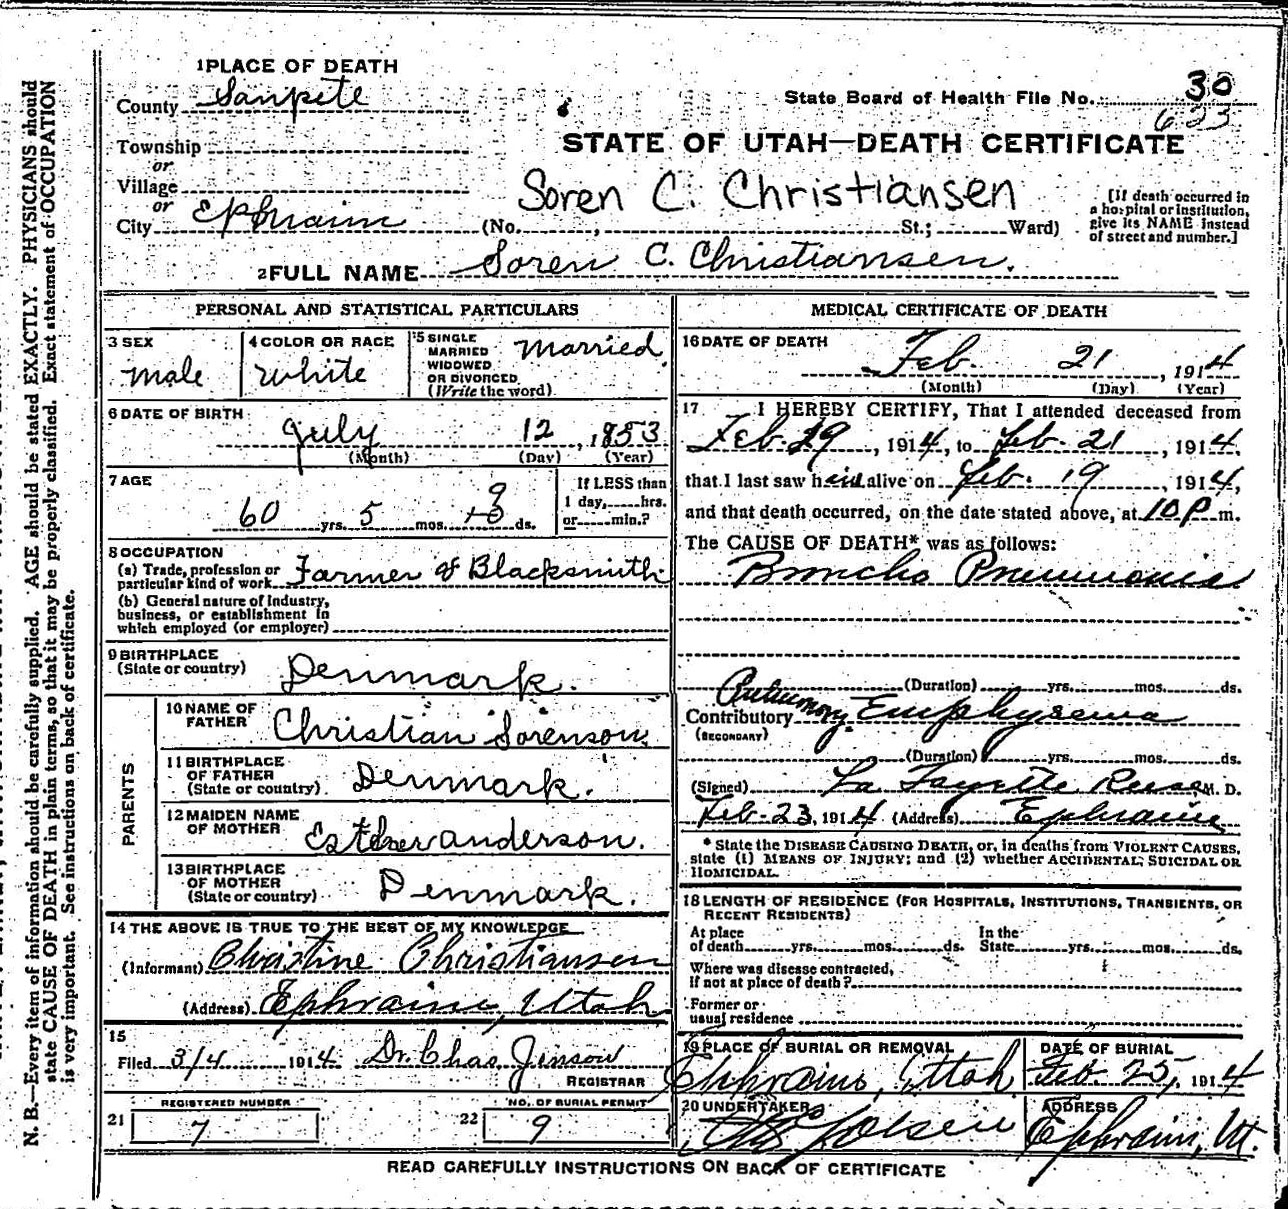 1 PLACE OF DEATH
County Sanpete
State Board of Health File No. 30
623
Township
or
Village
or
City Ephraim
STATE OF UTAH—DEATH CERTIFICATE
Soren C. Christiansen
(No. , St.; Ward)
[If death occurred in
a hospital or institution,
give its NAME instead
of street and number.]
2 FULL NAME Soren C. Christiansen.
PERSONAL AND STATISTICAL PARTICULARS
3 SEX
Male
4 COLOR OR RACE
White
5 SINGLE
MARRIED
WIDOWED
OR DIVORCED
(Write the word)
Married
6 DATE OF BIRTH
July 12, 1853
(Month) (Day) (Year)
7 AGE
60 yrs. 5 mos. 9 ds.
If LESS than
1 day, hrs.
or min.?
8 OCCUPATION
(a) Trade, profession or
particular kind of work Farmer & Blacksmith
(b) General nature of industry,
business, or establishment in
which employed (or employer)
9 BIRTHPLACE
(State or country) Denmark.
PARENTS
10 NAME OF
FATHER Christian Sorenson
11 BIRTHPLACE
OF FATHER
(State or country) Denmark.
12 MAIDEN NAME
OF MOTHER Esther anderson.
13 BIRTHPLACE
OF MOTHER
(State or country) Denmark.
14 THE ABOVE IS TRUE TO THE BEST OF MY KNOWLEDGE
(Informant) Christine Christiansen
(Address) Ephraim, Utah
15
Filed 3/4 1914 Dr. Chas Jenson
REGISTRAR
21 REGISTERED NUMBER
7
22 NO. OF BURIAL PERMIT
9
MEDICAL CERTIFICATE OF DEATH
16 DATE OF DEATH
Feb. 21, 1914
(Month) (Day) (Year)
17 I HEREBY CERTIFY, That I attended deceased from
Feb. 19, 1914, to Feb. 21, 1914,
that I last saw him alive on Feb. 19, 1914,
and that death occurred, on the date stated above, at 10 P m.
The CAUSE OF DEATH* was as follows:
Broncho Pneumonia
(Duration) yrs. mos. ds.
Contributory Emphysema
(SECONDARY)
(Duration) yrs. mos. ds.
(Signed) La Fayette Reese M. D.
Feb. 23, 1914 (Address) Ephraim
* State the DISEASE CAUSING DEATH, or, in deaths from VIOLENT CAUSES,
state (1) MEANS OF INJURY; and (2) whether ACCIDENTAL, SUICIDAL OR
HOMICIDAL.
18 LENGTH OF RESIDENCE (FOR HOSPITALS, INSTITUTIONS, TRANSIENTS, OR
RECENT RESIDENTS)
At place
of death yrs. mos. ds.
In the
State yrs. mos. ds.
Where was disease contracted,
If not at place of death?
Former or
usual residence
19 PLACE OF BURIAL OR REMOVAL
Ephraim, Utah
DATE OF BURIAL
Feb. 25, 1914
20 UNDERTAKER
Olsen
ADDRESS
Ephraim, Ut.
READ CAREFULLY INSTRUCTIONS ON BACK OF CERTIFICATE
N. B.—Every item of information should be carefully supplied. AGE should be stated EXACTLY. PHYSICIANS should
state CAUSE OF DEATH in plain terms, so that it may be properly classified. Exact statement of OCCUPATION
is very important. See instructions on back of certificate.